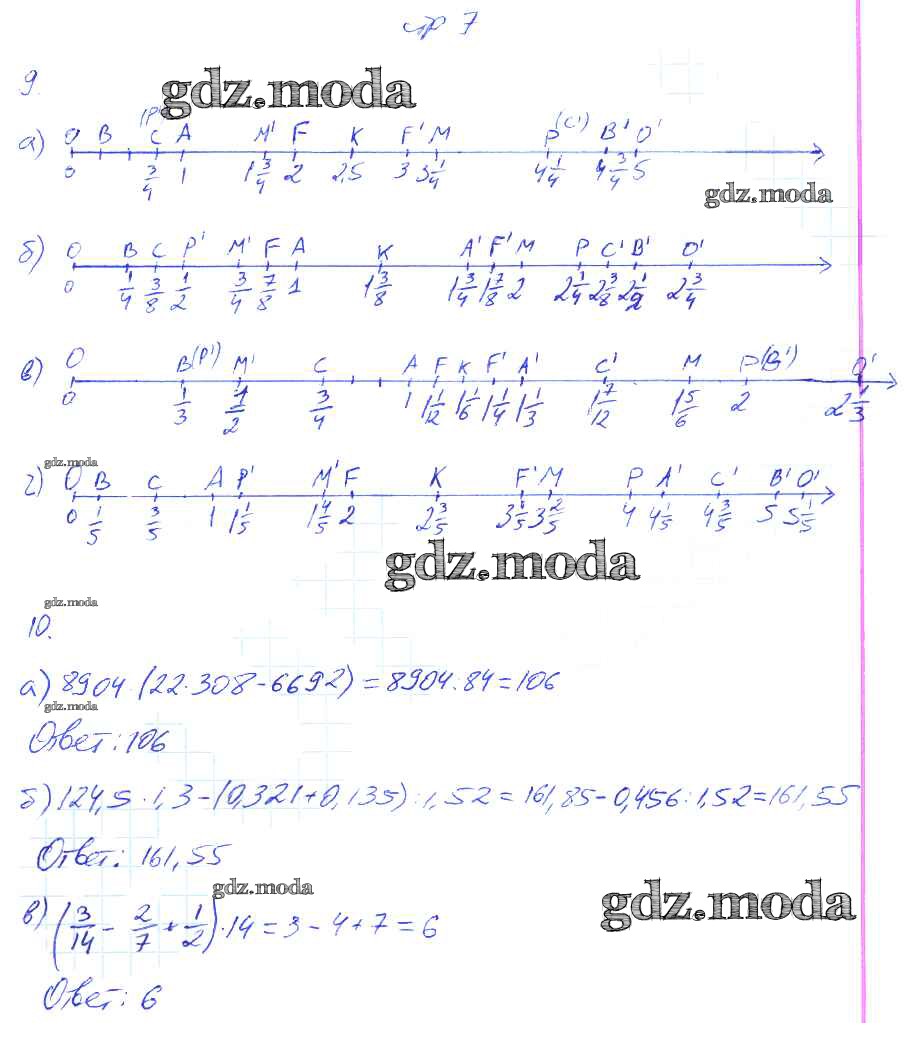 стр 7
9.
gdz.moda
(P')
а) O B C A M' F K F' M P(C') B' O'
0 3/4 1 1 3/4 2 2,5 3 3 1/4 4 1/4 4 3/4 5
gdz.moda
б) O B C P' M' F A K A' F' M P C' B' O'
0 1/4 3/8 1/2 3/4 7/8 1 1 3/8 1 3/4 1 7/8 2 2 1/4 2 3/8 2 1/2 2 3/4
в) O B(P') M' C A F K F' A' C' M P(B') O'
0 1/3 1/2 3/4 1 1 1/12 1 1/6 1 1/4 1 1/3 1 7/12 1 5/6 2 2 1/3
gdz.moda
г) O B C A P' M' F K F' M P A' C' B' O'
0 1/5 3/5 1 1 1/5 1 4/5 2 2 3/5 3 1/5 3 2/5 4 4 1/5 4 3/5 5 5 1/5
gdz.moda
gdz.moda
10.
а) 8904:(22·308-6692) = 8904:84 = 106
gdz.moda
Ответ: 106
б) 124,5·1,3-(0,321+0,135):1,52 = 161,85-0,456:1,52=161,55
Ответ: 161,55
gdz.moda
в) (3/14 - 2/7 + 1/2)·14 = 3-4+7 = 6
gdz.moda
Ответ: 6